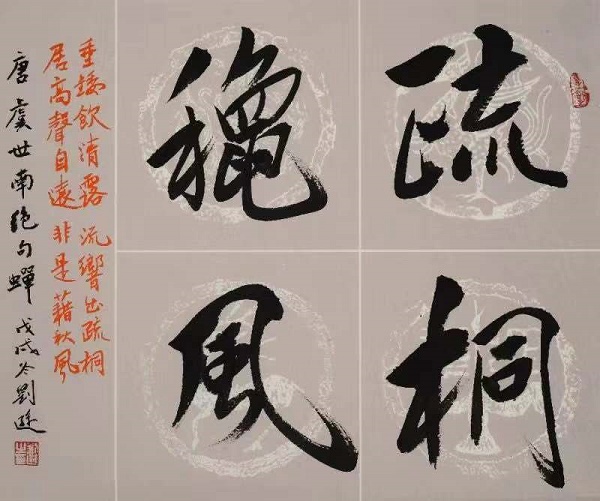 疏桐
穐風
垂緌飲清露 流響出疏桐
居高聲自遠 非是藉秋風
唐虞世南絕句蟬 戊戌冬劉